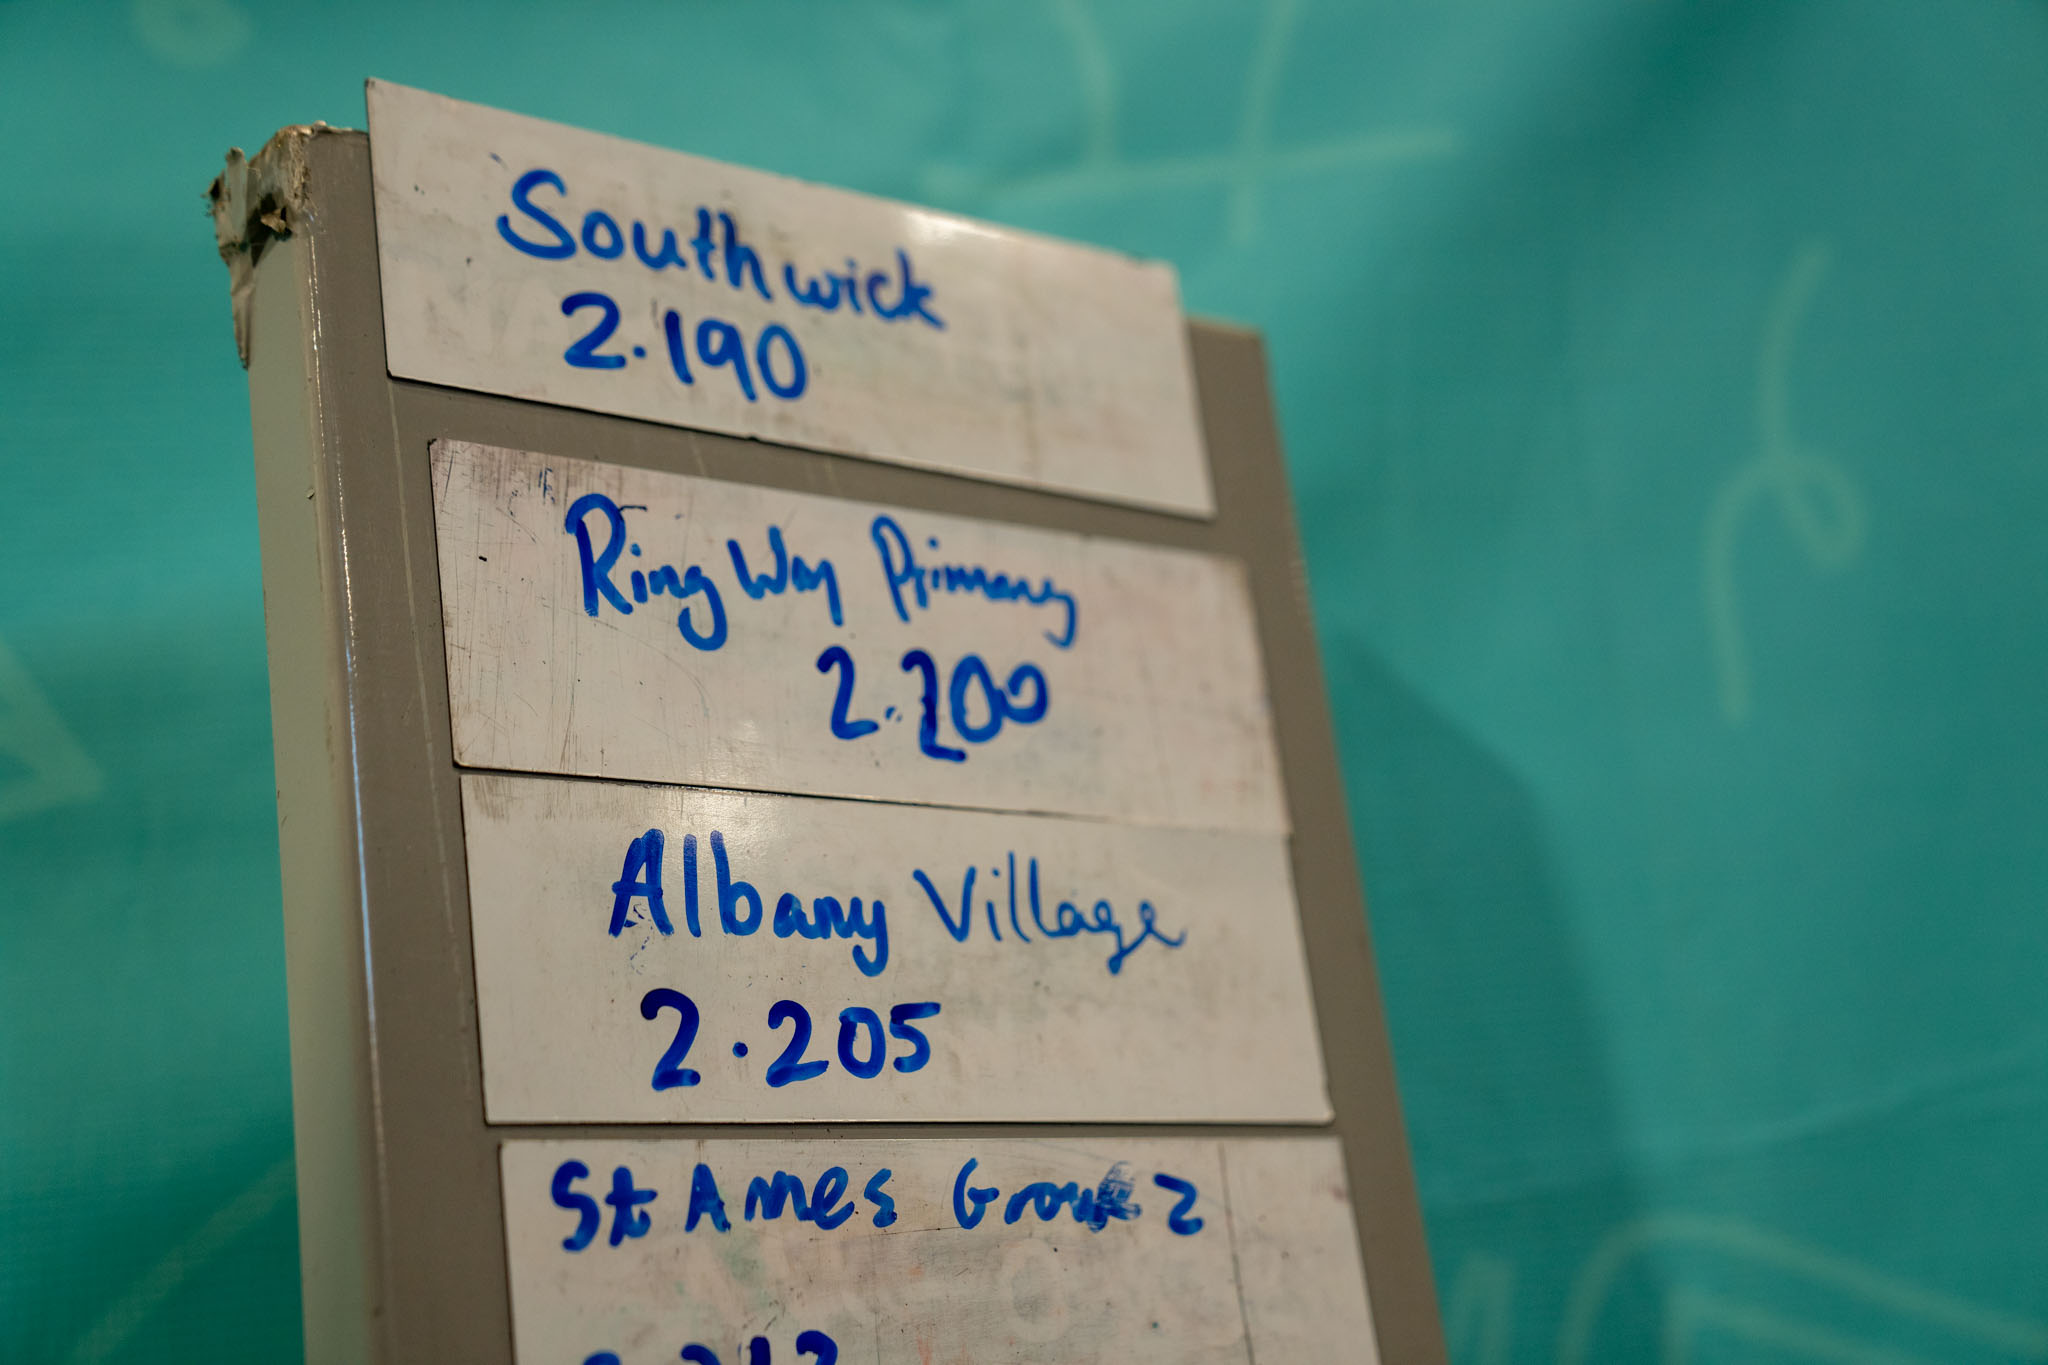 Southwick
2.190
Ring Way Primary
2.200
Albany Village
2.205
St Ames Group 2